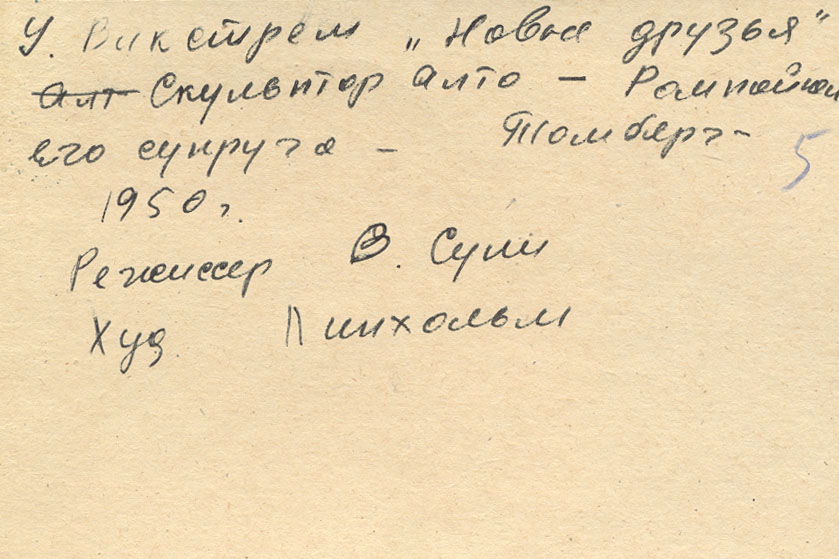 У. Викстрем „Новые друзья"
Алт Скульптор Алто – Рампайнен
его супруга – Томберг –
5
1950 г.
Режиссер В. Суни
Худ Линхольм